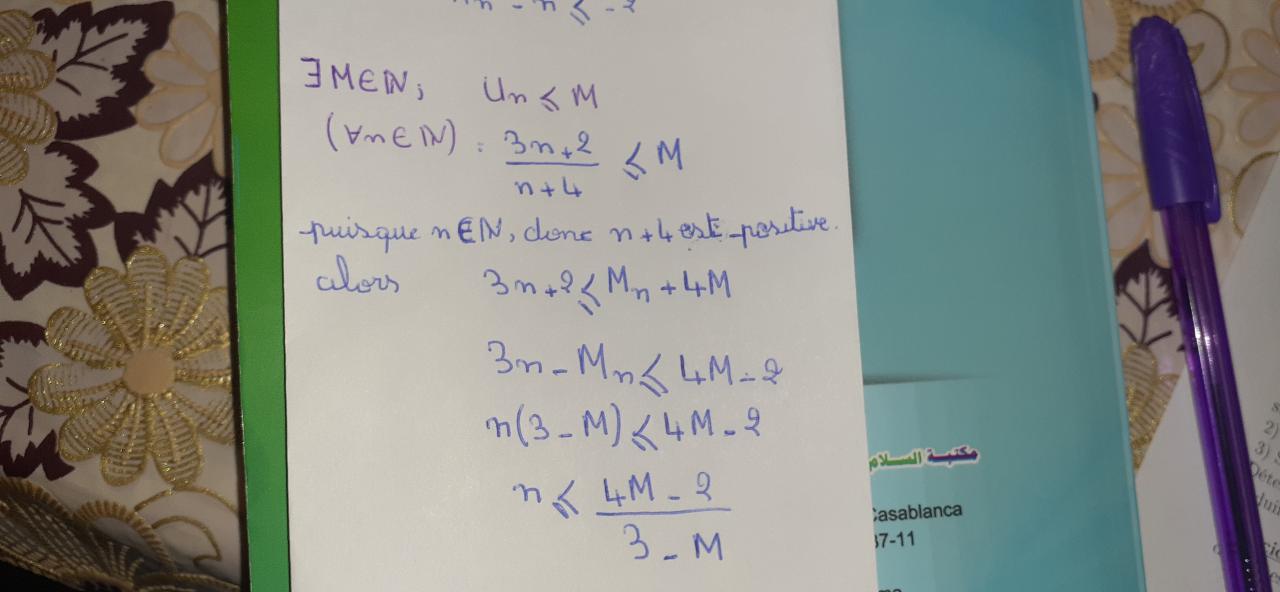 ∃M∈ℕ; Un ⩽ M
(∀n∈ℕ) : (3n+2)/(n+4) ⩽ M
puisque n∈ℕ, donc n+4 est positive.
alors 3n+2 ⩽ Mn + 4M
3n - Mn ⩽ 4M - 2
n(3 - M) ⩽ 4M - 2
n ⩽ (4M - 2)/(3 - M)
مكتبة السلام
Casablanca
37-11
2)
3)